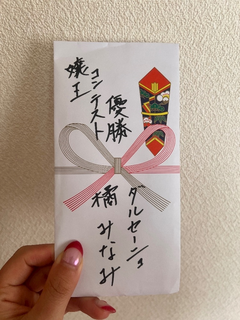 嬢王
コンテスト
優勝
ダルセーニョ
橘みなみ